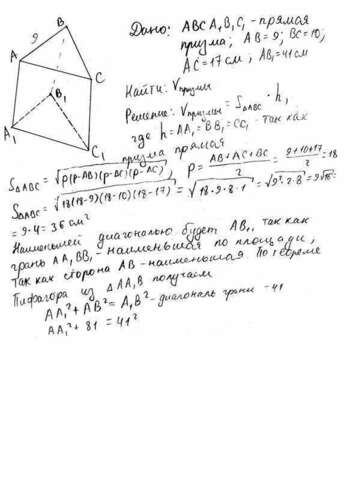 B
9
A
C
B₁
A₁
C₁
Дано: ABCA₁B₁C₁ - прямая
призма; AB=9; BC=10;
AC=17см, AB₁=41см
Найти: Vпризмы
Решение: Vпризмы = S△ABC · h,
где h=AA₁=BB₁=CC₁ - так как
призма прямая
S△ABC = √p(p-AB)(p-BC)(p-AC), p = AB+AC+BC/2 = 9+10+17/2 = 18
S△ABC = √18(18-9)(18-10)(18-17) = √18·9·8·1 = √9²·2·8 = 9√16 =
= 9·4 = 36 см²
Наименьшей диагональю будет AB₁, так как
грань AA₁BB₁ - наименьшая по площади,
так как сторона AB - наименьшая. По теореме
Пифагора из △AA₁B получаем
AA₁² + AB² = A₁B² - диагональ грани - 41
AA₁² + 81 = 41²